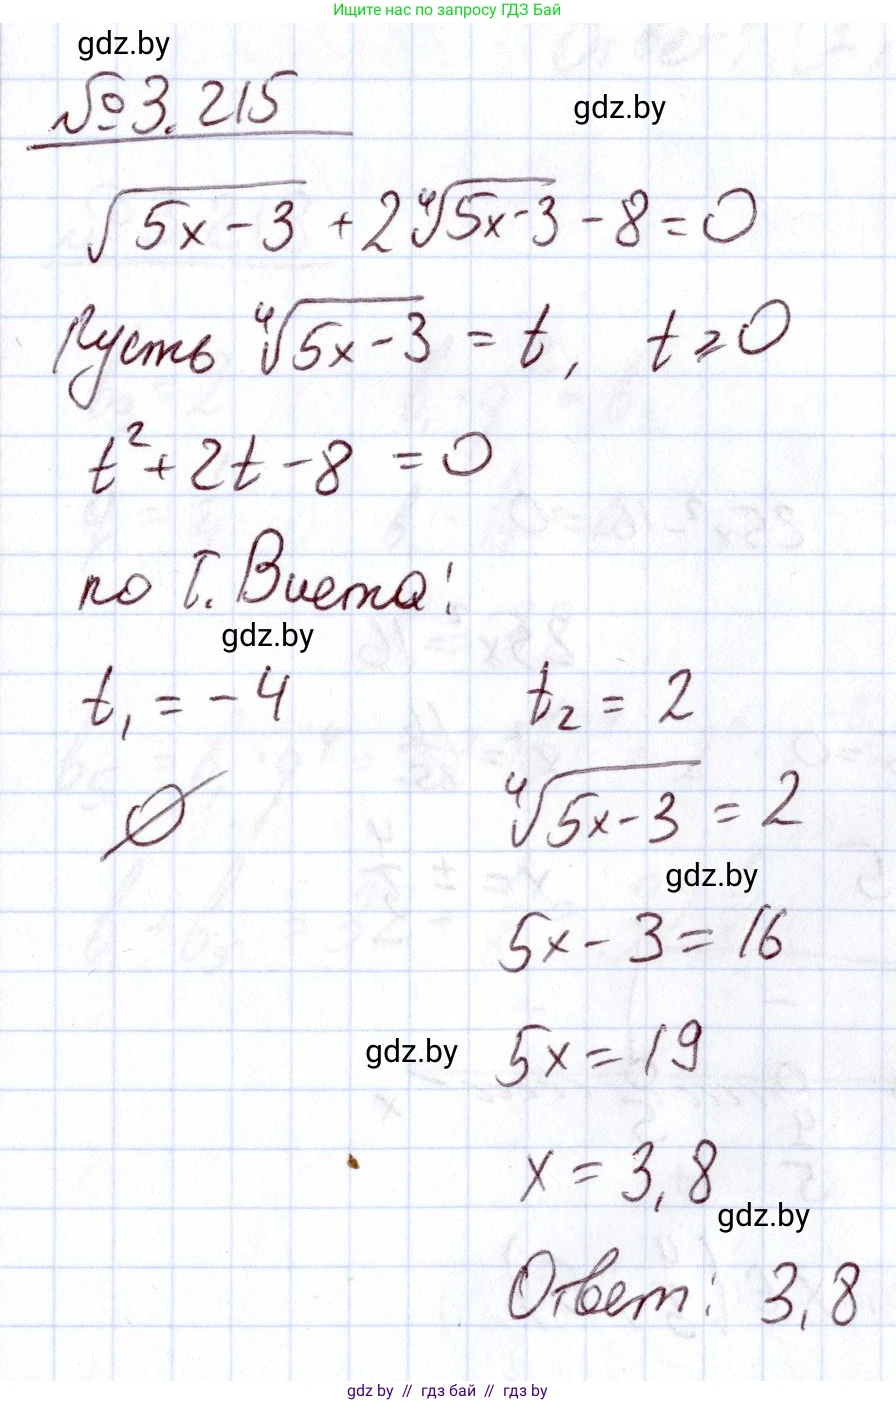 Ищите нас по запросу ГДЗ Бай
gdz.by
№3.215
gdz.by
√(5x-3) + 2∜(5x-3) - 8 = 0
Пусть ∜(5x-3) = t, t ≥ 0
t² + 2t - 8 = 0
по т. Виета:
gdz.by
t₁ = -4 t₂ = 2
∅ ∜(5x-3) = 2
gdz.by
5x - 3 = 16
gdz.by
5x = 19
x = 3,8
gdz.by
Ответ: 3,8
gdz by // гдз бай // гдз by